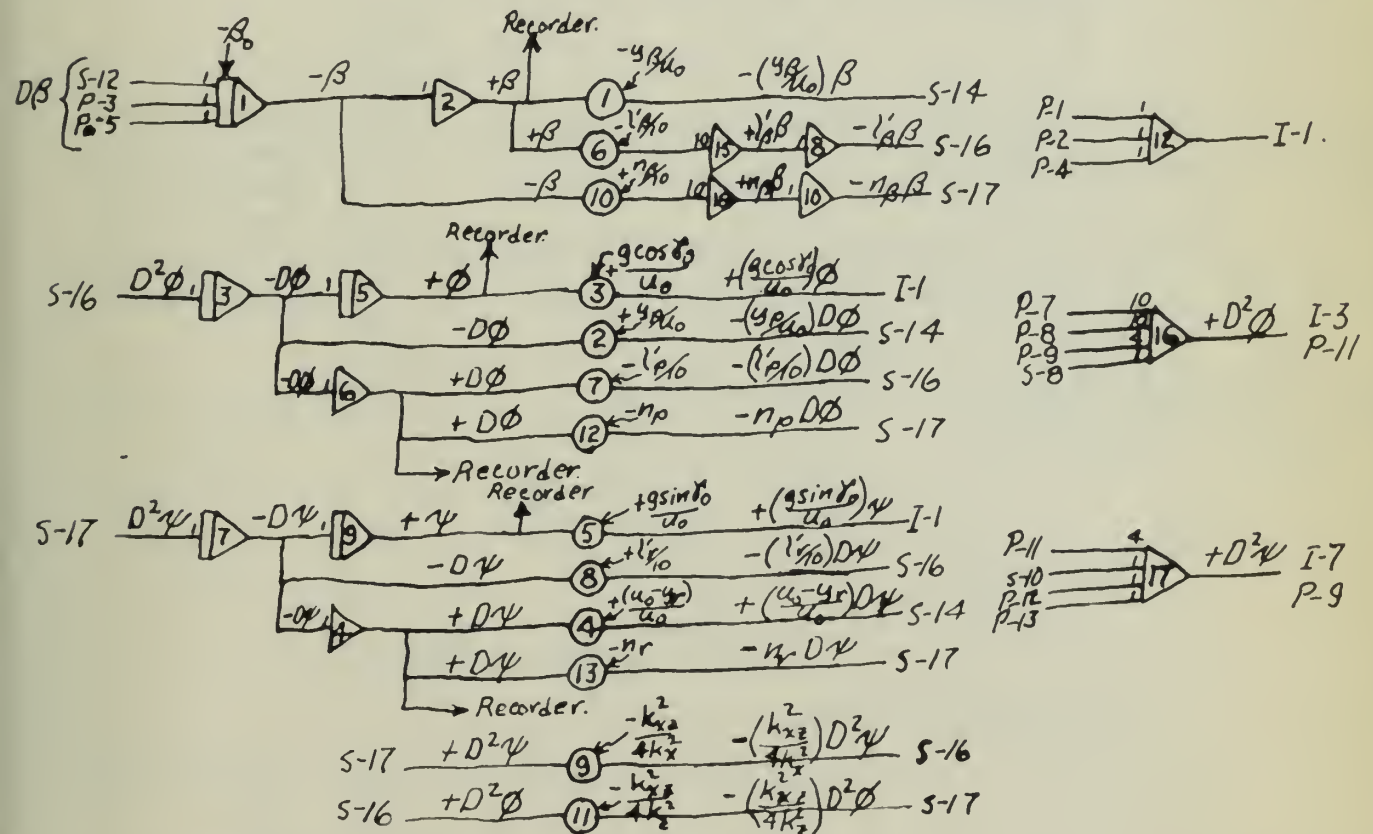 Recorder.
-β₀
Dβ { S-12 1 P-3 1 P-5 1
1 -β 1 2 +β 1 -yβ/u₀ -(yβ/u₀)β S-14
+β 6 -l'β/10 10 15 +l'ββ 8 -l'ββ S-16
-β 10 +nβ/10 10 18 +nββ 1 10 -nββ S-17
P-1 1
P-2 1 12 I-1.
P-4 1
Recorder.
S-16 D²ϕ 1 3 -Dϕ 1 5 +ϕ 3 +gcosγ₀/u₀ +(gcosγ₀/u₀)ϕ I-1
-Dϕ 2 +yp/u₀ -(yp/u₀)Dϕ S-14
-Dϕ 1 6 +Dϕ 7 -l'p/10 -(l'p/10)Dϕ S-16
+Dϕ 12 -np -npDϕ S-17
Recorder.
P-7 10
P-8
P-9 16 +D²ϕ I-3
S-8 P-11
Recorder
S-17 D²ψ 1 7 -Dψ 1 9 +ψ 5 +gsinγ₀/u₀ +(gsinγ₀/u₀)ψ I-1
-Dψ 8 +l'r/10 -(l'r/10)Dψ S-16
-Dψ 1 4 +Dψ 4 +(u₀-yr)/u₀ +(u₀-yr/u₀)Dψ S-14
+Dψ 13 -nr -nrDψ S-17
Recorder.
P-11 4
S-10 1 17 +D²ψ I-7
P-12 1 P-9
P-13 1
S-17 +D²ψ 9 -k²xz/4k²x -(k²xz/4k²x)D²ψ S-16
S-16 +D²ϕ 11 -k²xz/4k²z -(k²xz/4k²z)D²ϕ S-17